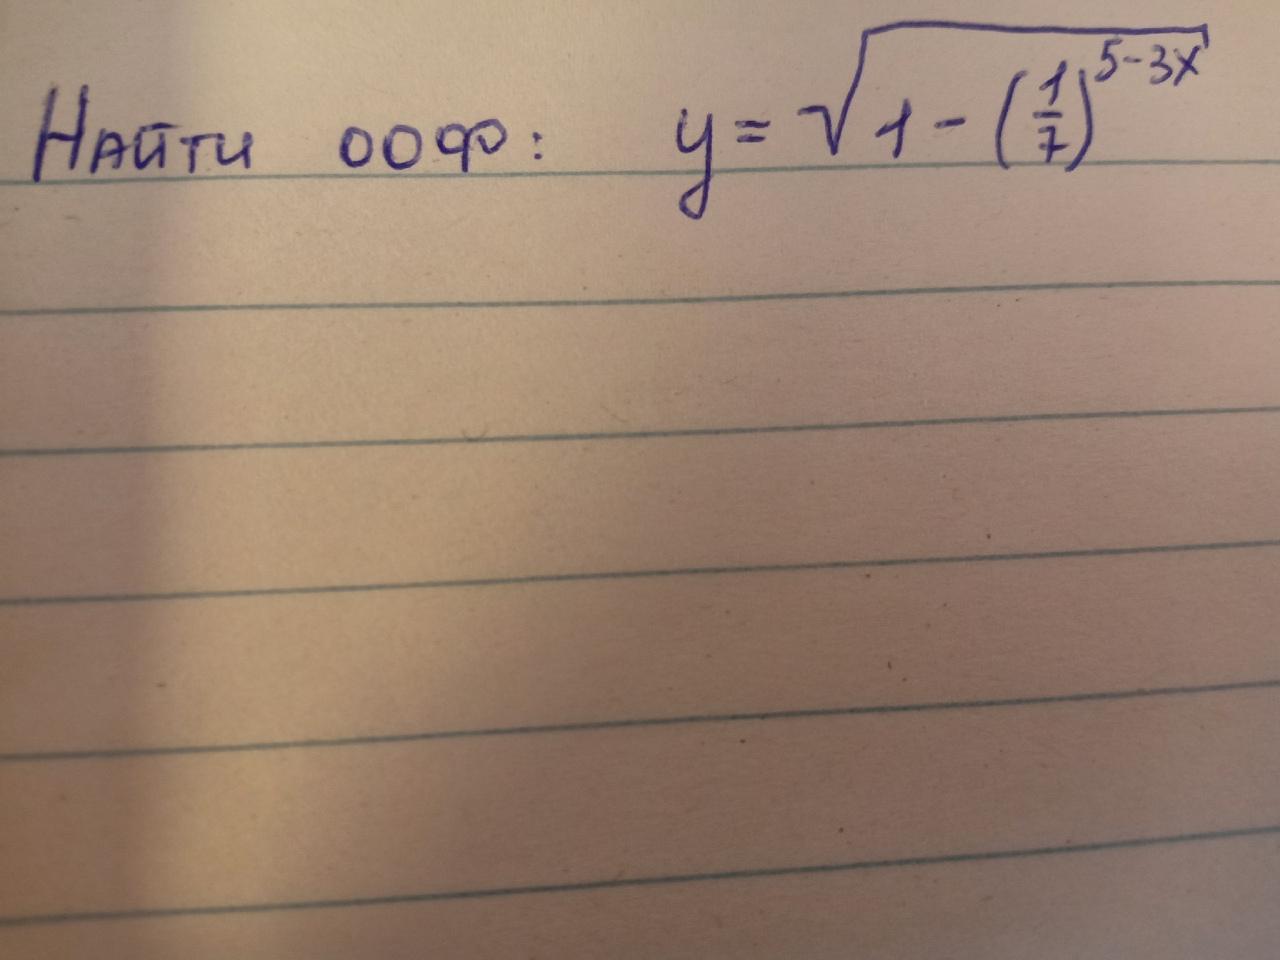 Найти ООФ: y = √(1 - (1/7)^(5-3x))